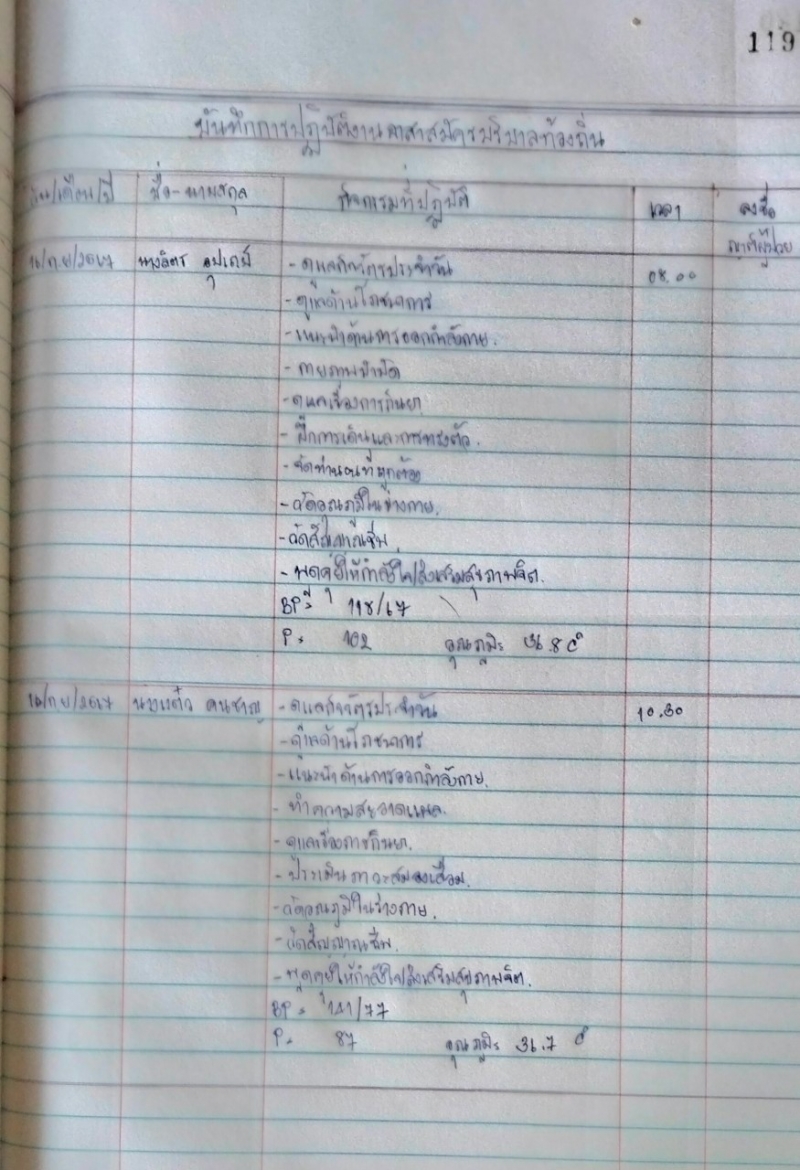 119
บันทึกการปฏิบัติงานอาสาสมัครบริบาลท้องถิ่น
วัน/เดือน/ปี ชื่อ-นามสกุล กิจกรรมที่ปฏิบัติ เวลา ลงชื่อ
ญาติผู้ป่วย
16/ก.ย/2567 - ดูแลกิจวัตรประจำวัน 08.00
- ดูแลด้านโภชนาการ
- แนะนำด้านการออกกำลังกาย.
- กายภาพบำบัด
- ดูแลเรื่องการกินยา
- ฝึกการเดินและการทรงตัว.
- จัดท่านอนที่ถูกต้อง
- วัดอุณภูมิในร่างกาย.
- วัดสัญญาณชีพ.
- พูดคุยให้กำลังใจส่งเสริมสุขภาพจิต.
BP = 118/67
P = 102 อุณภูมิ = 36.8 c°
16/ก.ย/2567 นางแต๋ว - ดูแลกิจวัตรประจำวัน 10.30
- ดูแลด้านโภชนาการ
- แนะนำด้านการออกกำลังกาย.
- ทำความสะอาดแผล.
- ดูแลเรื่องการกินยา.
- ประเมินภาวะสมองเสื่อม.
- วัดอุณภูมิในร่างกาย.
- วัดสัญญาณชีพ.
- พูดคุยให้กำลังใจส่งเสริมสุขภาพจิต.
BP = /77
P = 87 อุณภูมิ = 36.7 c°